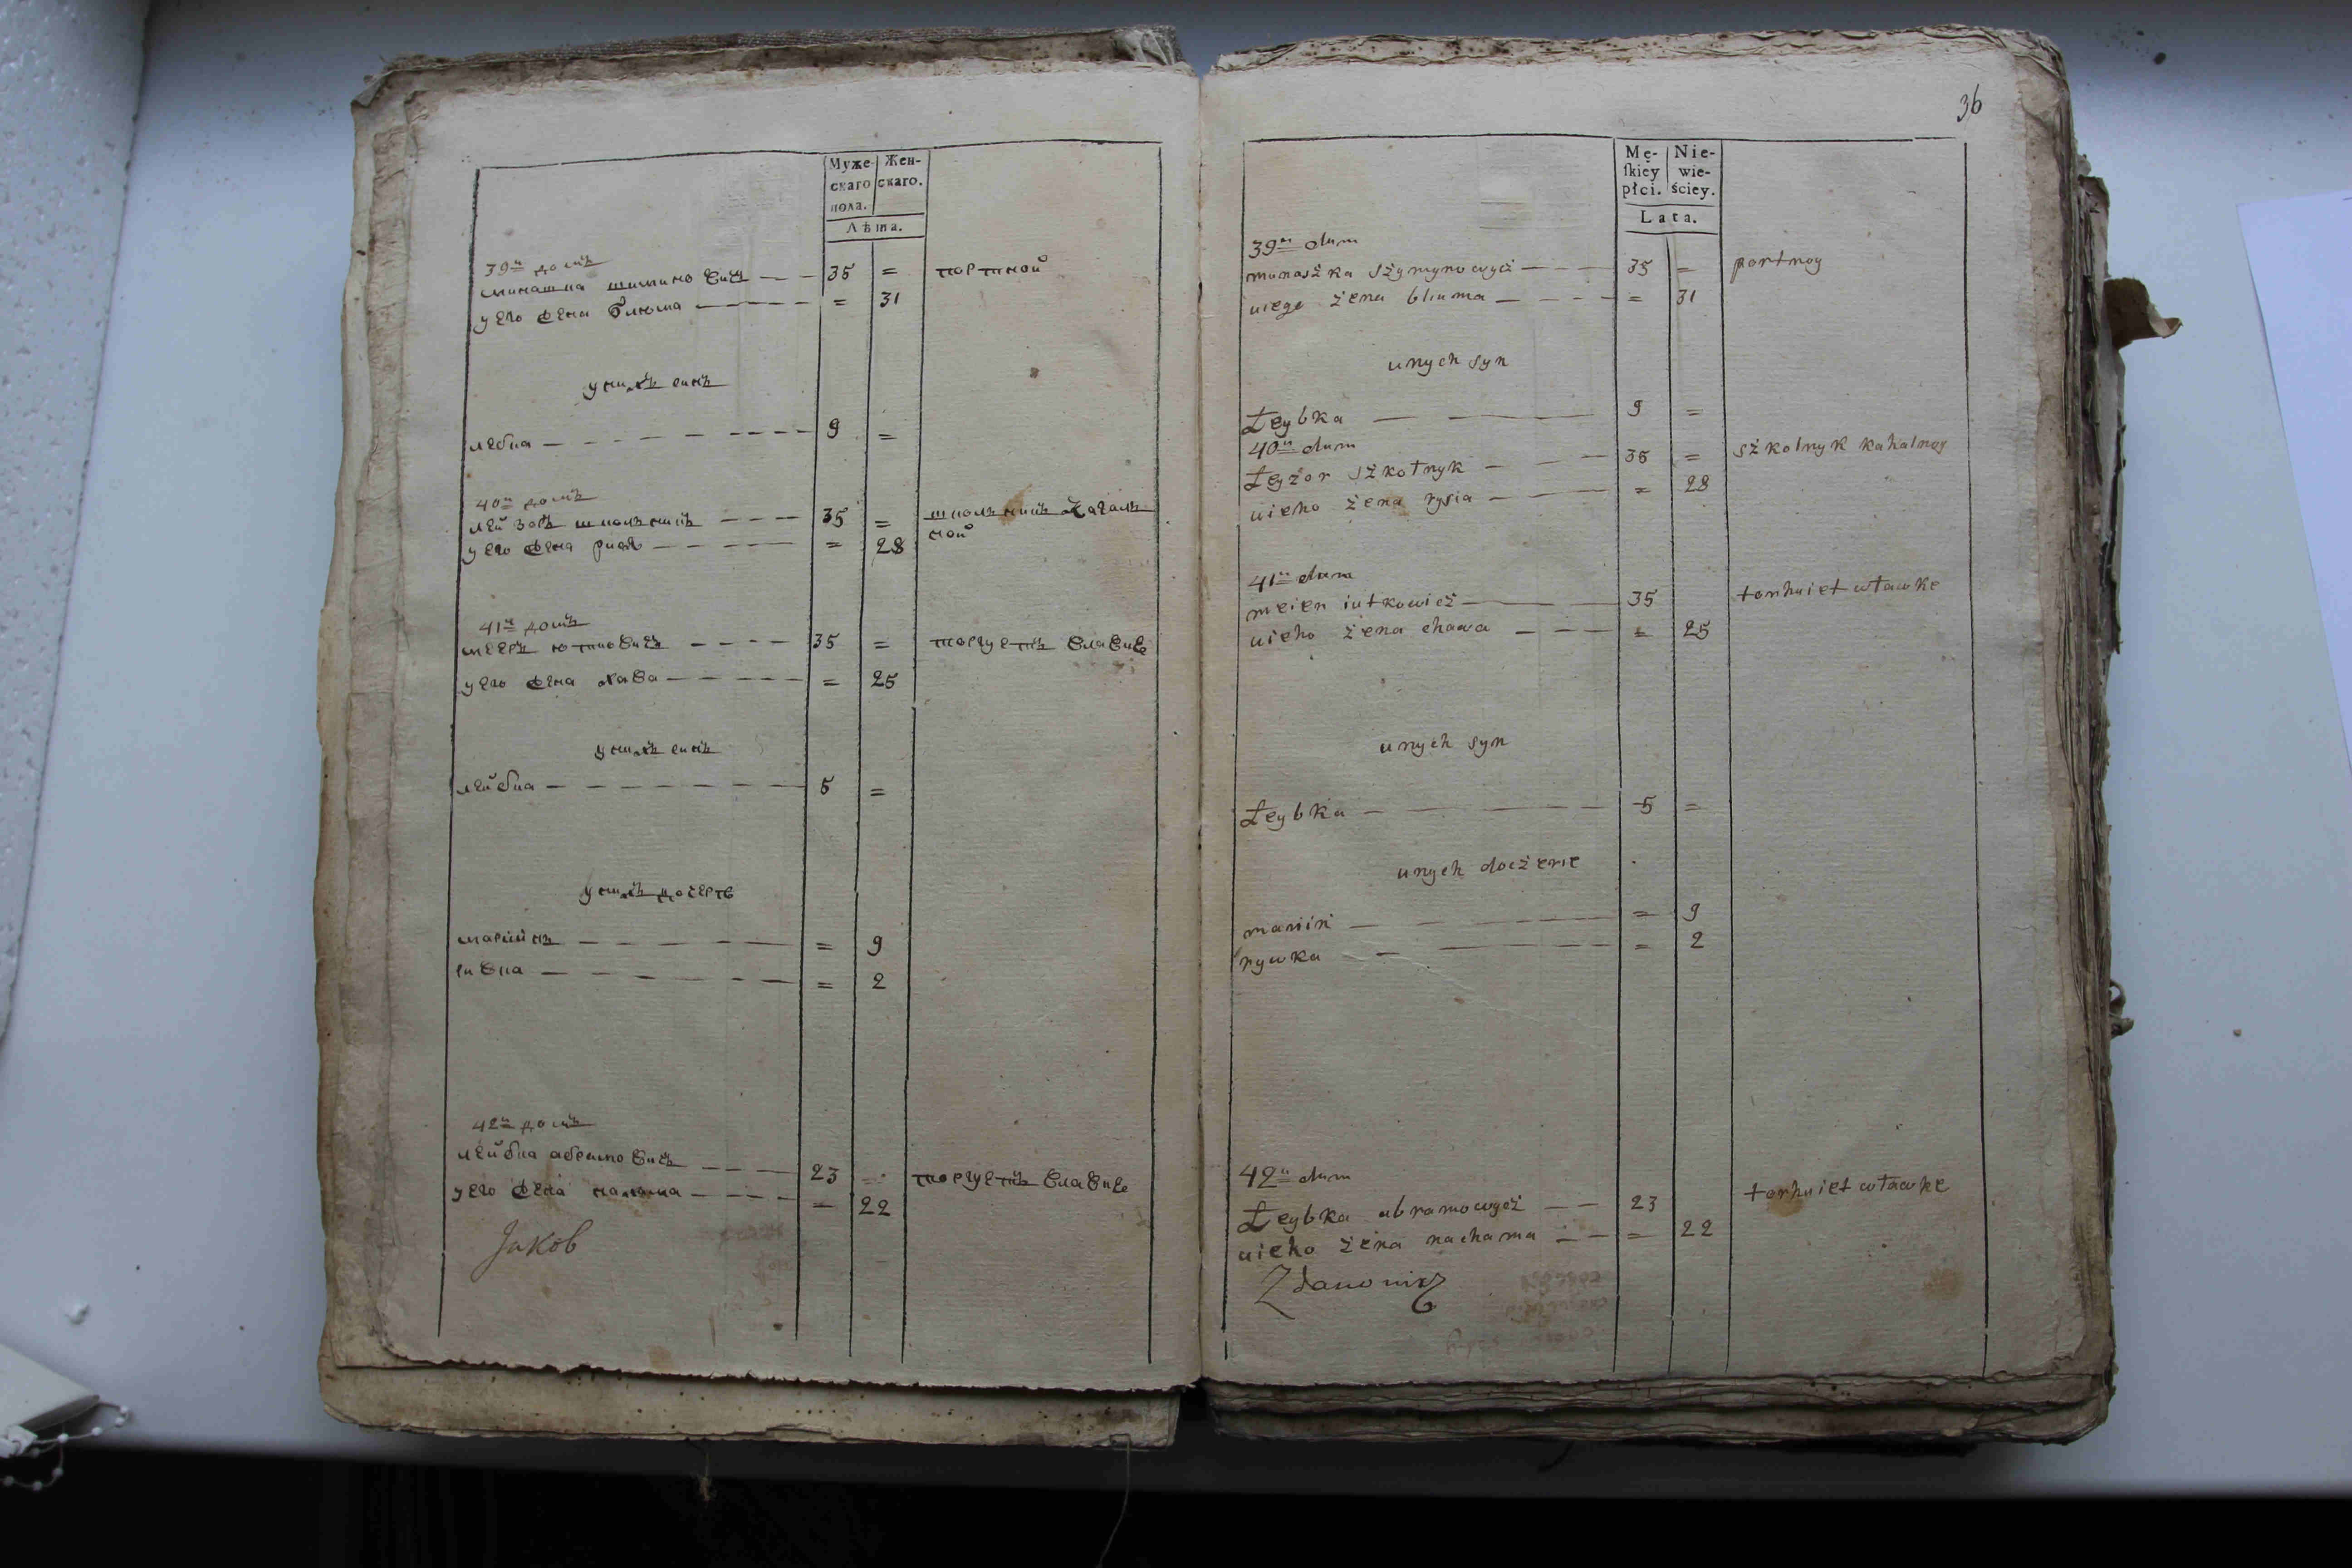 Муже-
скаго
пола.
Жен-
скаго.
Лѣта.
39й домъ
минашка шимино вичъ — — 35 = портной
у его жена блюма — — — = 31
у нихъ синъ
леібка — — — 9 =
40й домъ
лейзоръ школникъ — — — 35 = школникъ кагалъ
ной
у его жена рися — — — = 28
41й домъ
мееръ ютковичъ — — — 35 = торгуетъ влавке
у его жена хава — — — = 25
у нихъ синъ
лейбка — — — 5 =
у нихъ дочерь
марийнъ — — — = 9
ривка — — — = 2
42й домъ
лейбка абрамовичъ — — — 23 = торгуетъ влавке
у его жена нахама — — — = 22
Jakob
36
Mę-
ſkiey
płci.
Nie-
wie-
ściey.
Lata.
39й dum
monaszka szymynowycż — — — 35 = portnoy
uiego żena bluma — — — = 31
unych syn
Łeybka — — 9 =
40й dum
Łeyzor szkołnyk — — — 35 = szkolnyk kahalnoy
uieho żena rysia — — — = 28
41й dum
meier iutkowicż — — — 35 torhuiet wławke
uieho żena chawa — — — = 25
unych syn
Łeybka — — — 5 =
unych docżerie
mariin — — — = 9
rywka — — = 2
42й dum
Łeybka abramowycż — — 23 torhuiet wławke
uieho żena nachama — — = 22
Zdanowicz